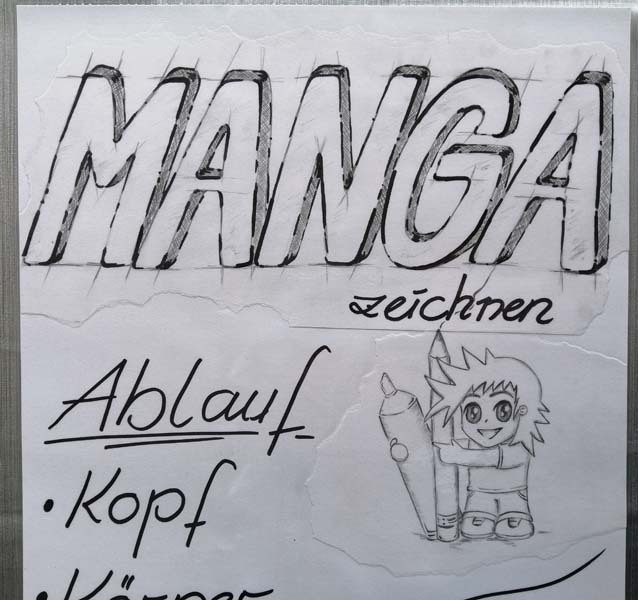 MANGA
zeichnen
Ablauf
• Kopf
• Körper